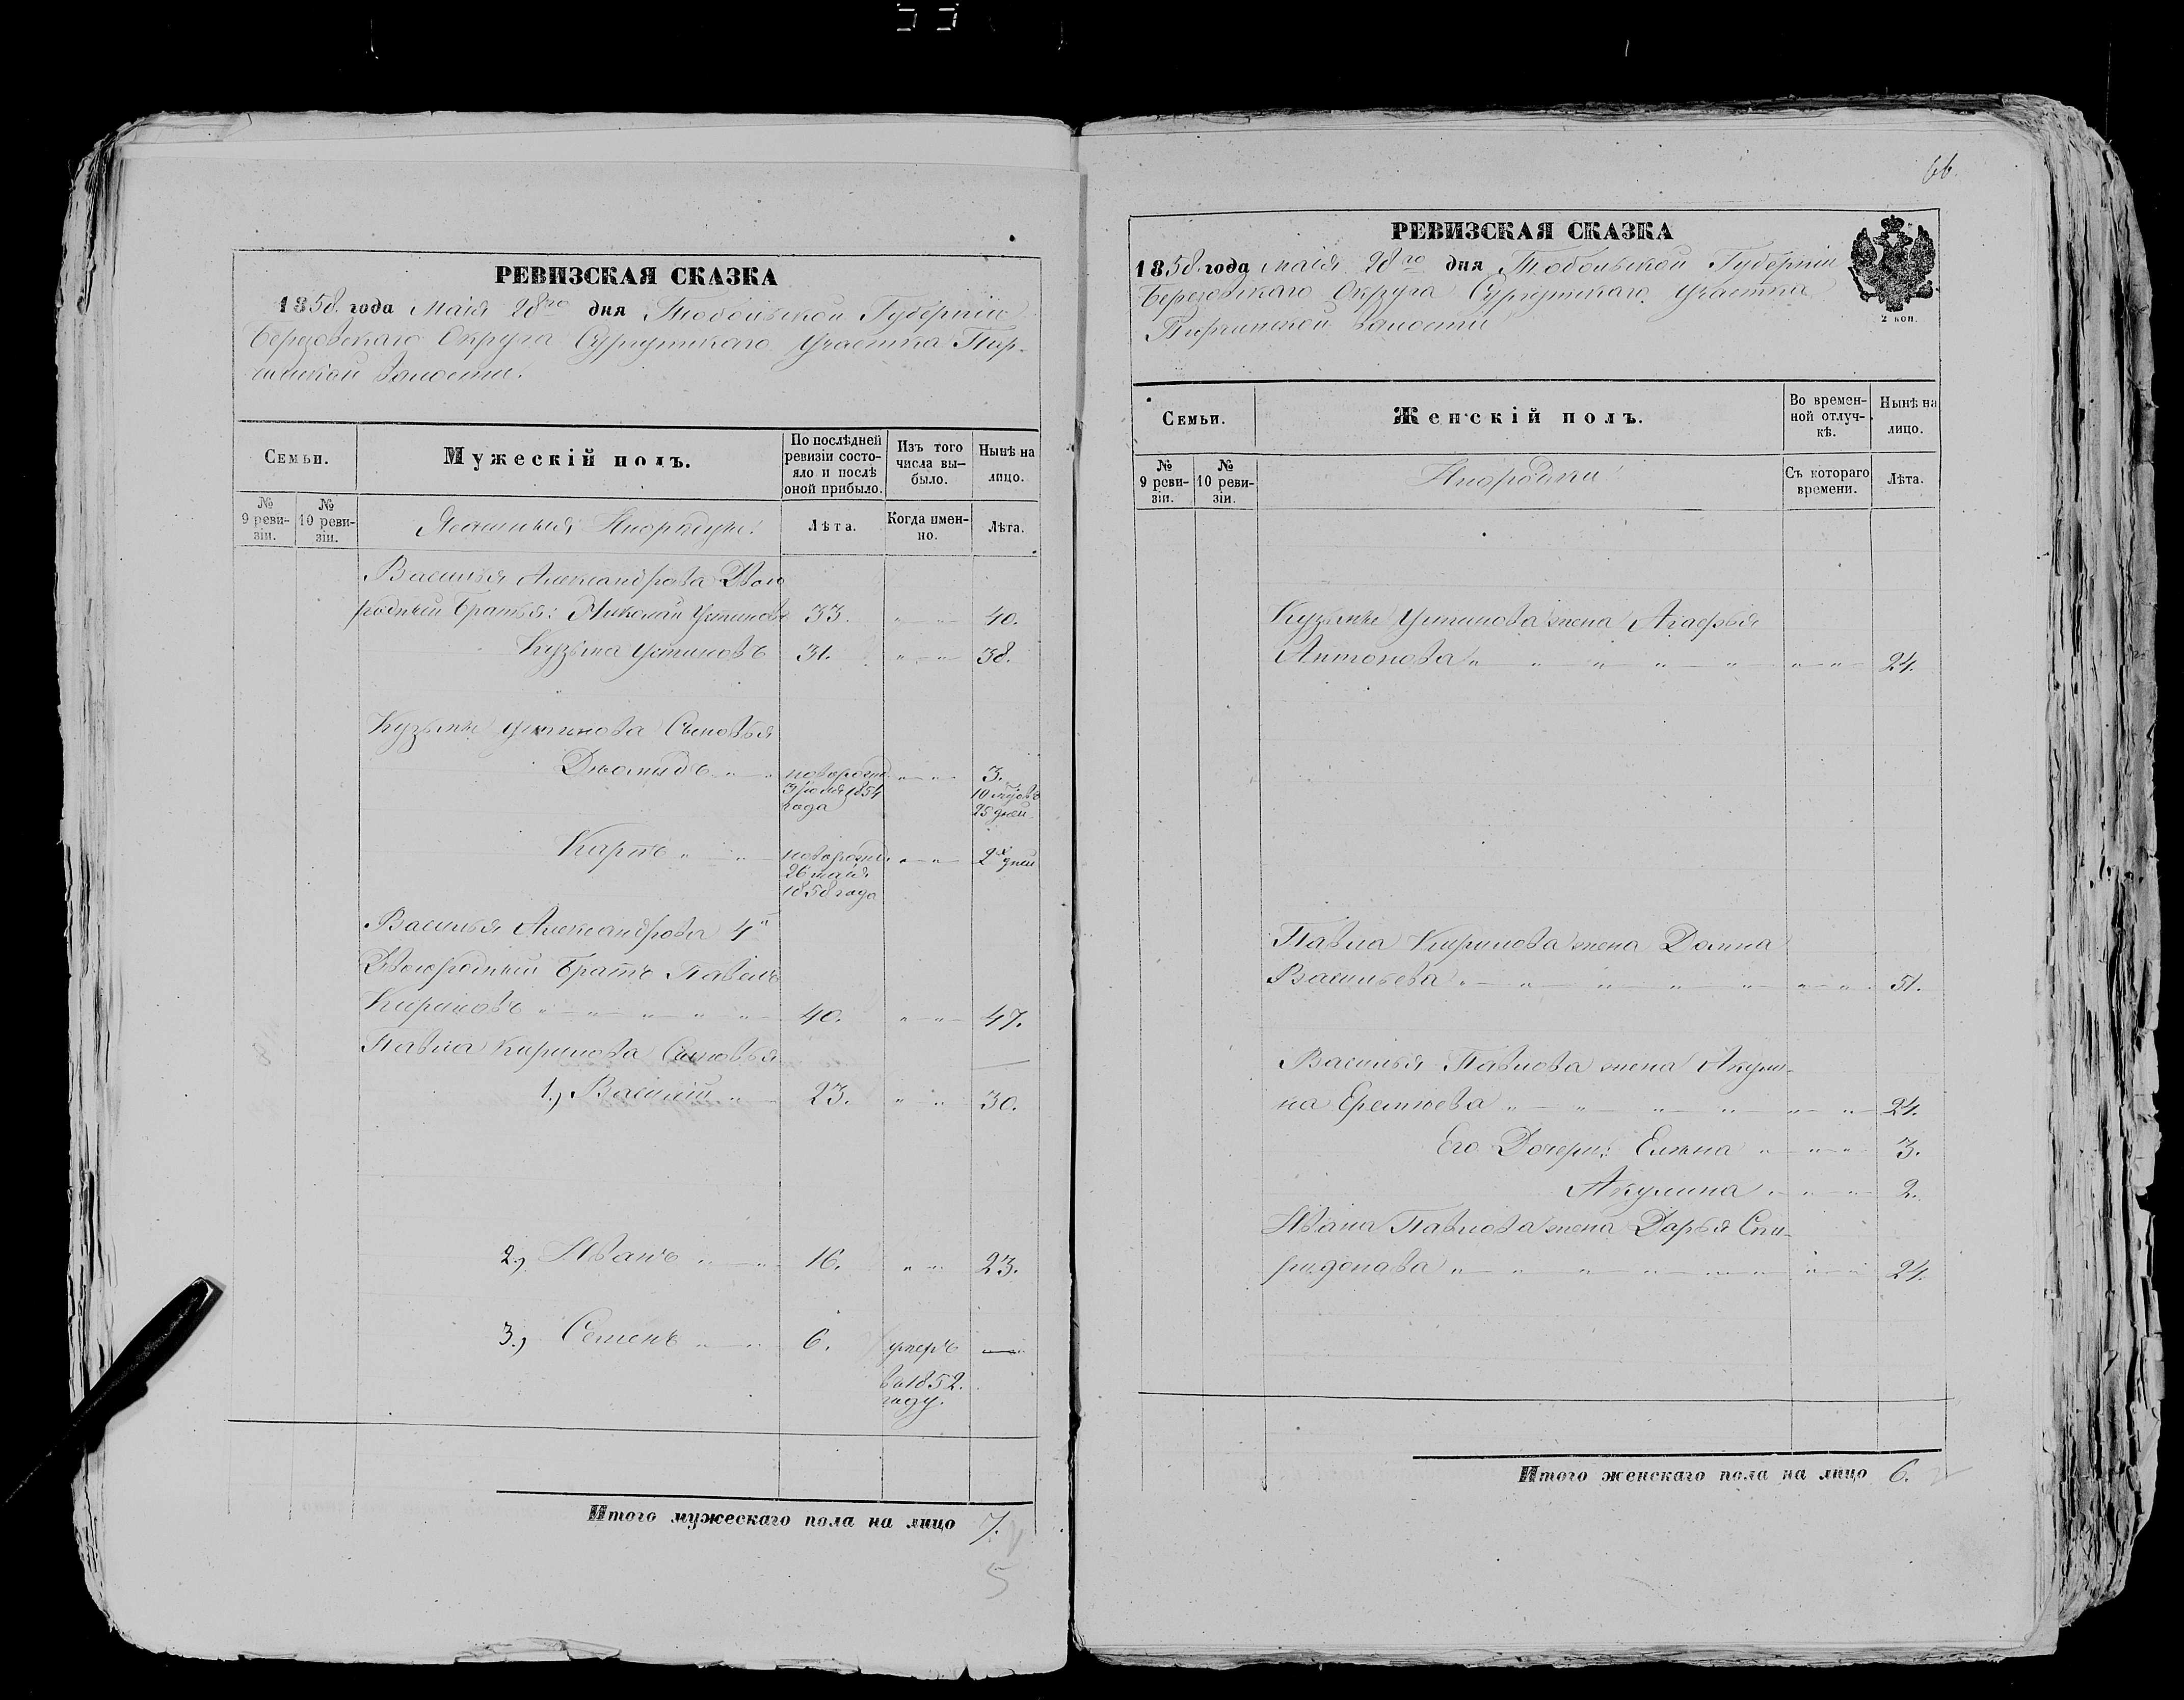 РЕВИЗСКАЯ СКАЗКА
1858 года Маія 28го дня Тобольской Губерніи
Березовскаго Округа Сургутскаго Участка Пир-
чинской волости.
Семьи.
Мужескій полъ.
По послѣдней
ревизіи состо-
яло и послѣ
оной прибыло.
Изъ того
числа вы-
было.
Нынѣ на
лицо.
№
9 реви-
зіи.
№
10 реви-
зіи.
Ясашныя Инородцы.
Лѣта.
Когда имен-
но.
Лѣта.
Василья Александрова Двою
родныи Братья: Николай Устиновъ 33. " " 40.
Кузьма Устиновъ 31. " " 38.
Кузьмы Устинова Сыновья
Діомидъ " " новорожд. " " 3.
3 Іюля 1854 10 мѣсяцъ
года 25 дней
Карпъ " " новорожд. " " 2х дней
26 маія
1858 года
Василья Александрова 4й
Двоюродный Братъ Павелъ
Кириловъ " " " " " 40. " " 47.
Павла Кирилова Сыновья
1.) Василій " " 23. " " 30.
2.) Иванъ " " 16. " " 23.
3.) Семенъ " " 6. умеръ —
въ 1852.
году.
Итого мужескаго пола на лицо 7.
5
66
РЕВИЗСКАЯ СКАЗКА
1858 года маія 28го дня Тобольской Губерніи
Березовскаго Округа Сургутскаго Участка
Пирчинской волости
2 коп.
Семьи.
Женскій полъ.
Во времен-
ной отлуч-
кѣ.
Нынѣ на
лицо.
№
9 реви-
зіи.
№
10 реви-
зіи.
Инородки
Съ котораго
времени.
Лѣта.
Кузьмы Устинова жена Агафья
Антонова " " " " " " " 24.
Павла Кирилова жена Домна
Васильева " " " " " " " 51.
Василья Павлова жена Акули-
на Еремѣева " " " " " " 24.
Его Дочери: Елена " " " 3.
Акулина " " " 2.
Ивана Павлова жена Дарья Спи-
ридонова " " " " " " " 24.
Итого женскаго пола на лицо 6.